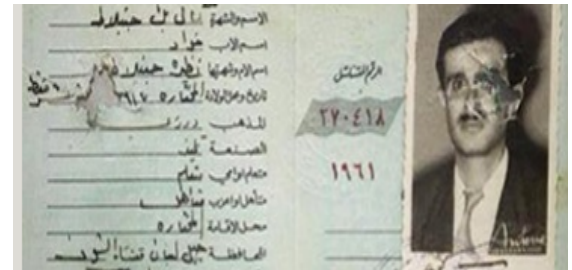 الاسم والشهرة كمال بك جنبلاط
اسم الاب فؤاد
اسم الام وشهرتها نظيره جنبلاط
تاريخ ومحل الولادة المختاره ١٩١٧
المذهب درزي
الصنعة
متعلم او امي متعلم
متأهل او اعزب متأهل
محل الاقامة المختاره
المحافظة جبل لبنان قضاء الشوف
الرقم المتسلسل
٢٧٠٤١٨
١٩٦١